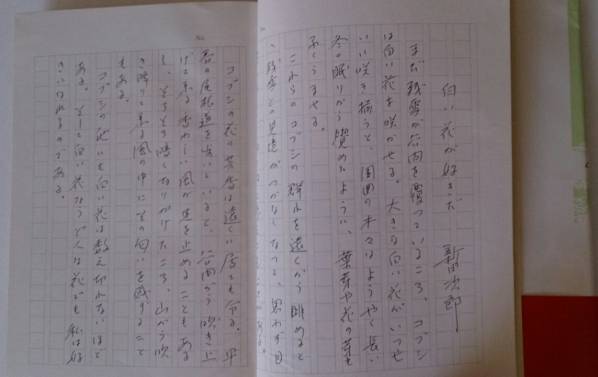 白い花が好きだ
新田次郎
まだ残雪が谷間を覆っているころ、コブシ
は白い花を咲かせる。大きな白い花がいっせ
いに咲き揃うと、周囲の木々はようやく長い
冬の眠りから覚めたように、葉芽や花の芽を
ふくらませる。
これらのコブシの群れを遠くから眺めると
残雪との見境がつかなくなって、思わず目
コブシの花の芳香は遠くに居ても分る。早
春の尾根道を歩いていると、谷間から吹き上
げて来る香わしい風が足を止めることもある
し、とろとろ暖くなりかけたころ、山から吹
き降りて来る風の中にその匂いを感ずること
もある。
コブシの他にも白い花は数え切れないほど
ある。そして白い花ならどんな花でも私は好
きになれるのである。